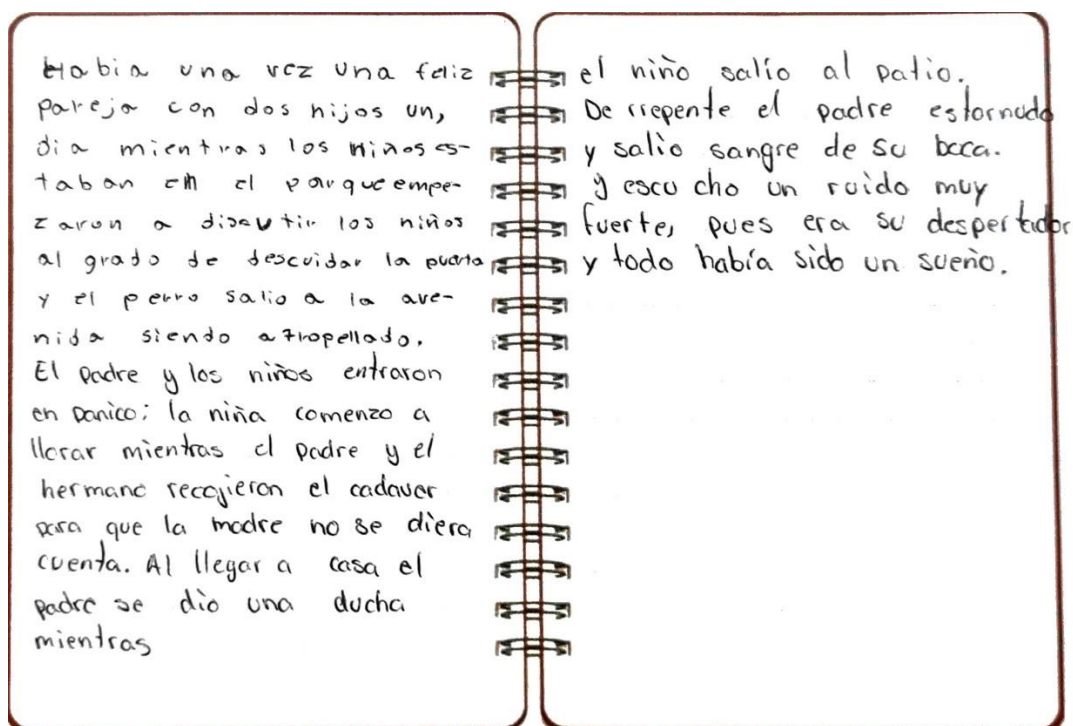 Habia una vez una feliz
pareja con dos hijos un,
dia mientras los niños es-
taban en el parque empe-
zaron a discutir los niños
al grado de descuidar la puerta
y el perro salio a la ave-
nida siendo atropellado.
El padre y los niños entraron
en panico; la niña comenzo a
llorar mientras el padre y el
hermano recojieron el cadaver
para que la madre no se diera
cuenta. Al llegar a casa el
padre se dio una ducha
mientras
el niño salío al patio.
De rrepente el padre estornudo
y salio sangre de su boca.
y escu cho un ruido muy
fuerte, pues era su despertador
y todo había sido un sueño.